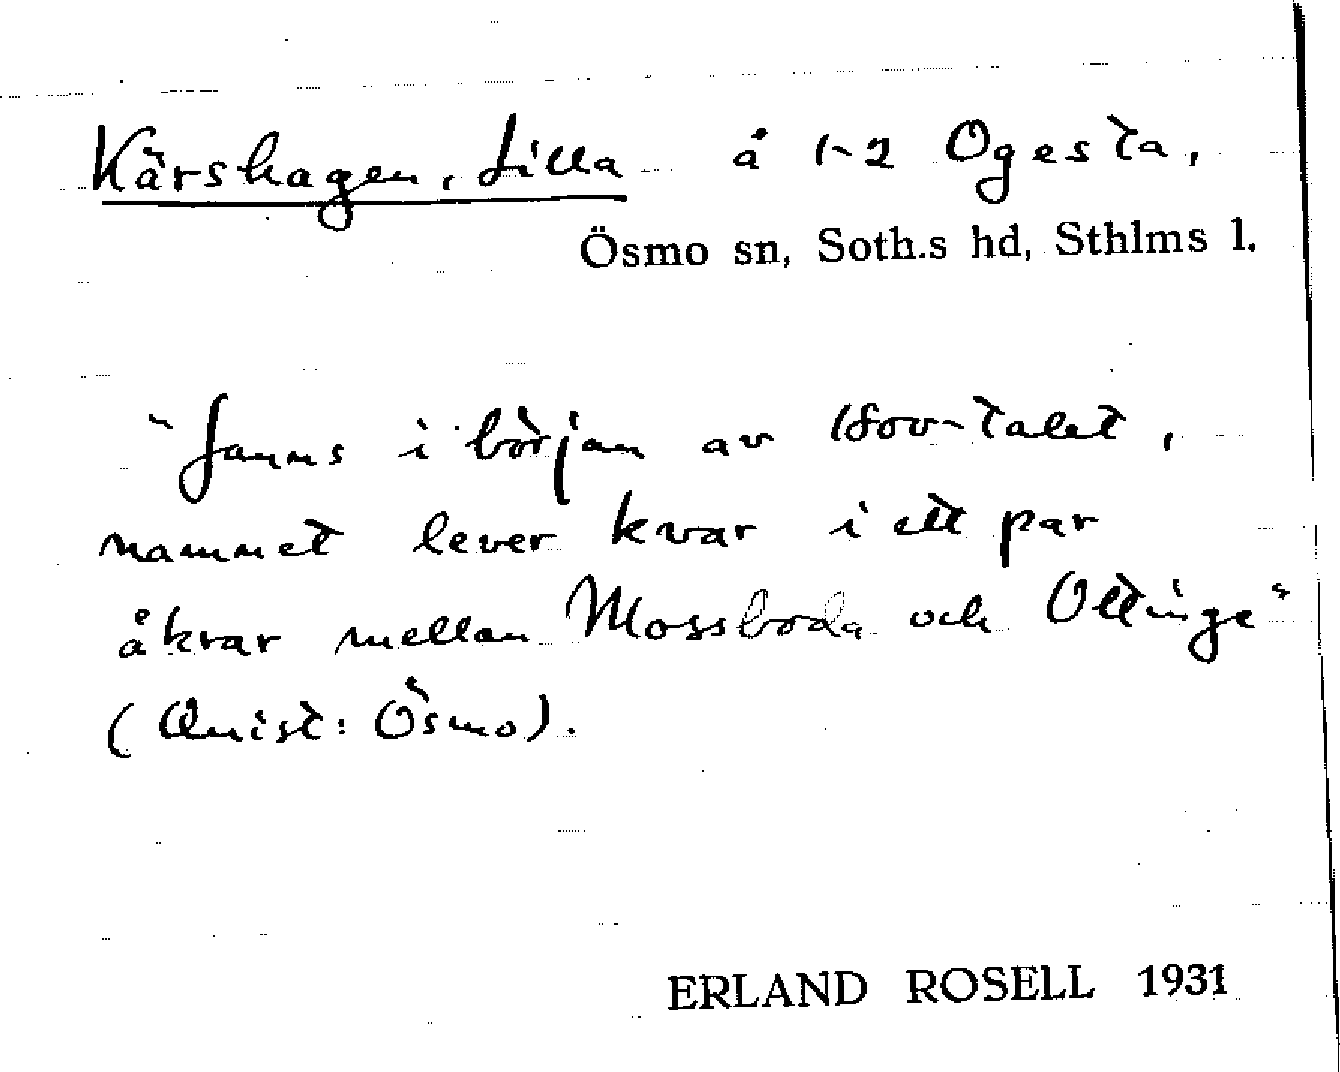 Kärshagen, Lilla å 1-2 Ogesta,
Ösmo sn, Soth.s hd, Sthlms l.
"fanns i början av 1800-talet,
namnet lever kvar i ett par
åkrar mellan Mossboda och Ottinge"
(Qvist: Ösmo).
ERLAND ROSELL 1931